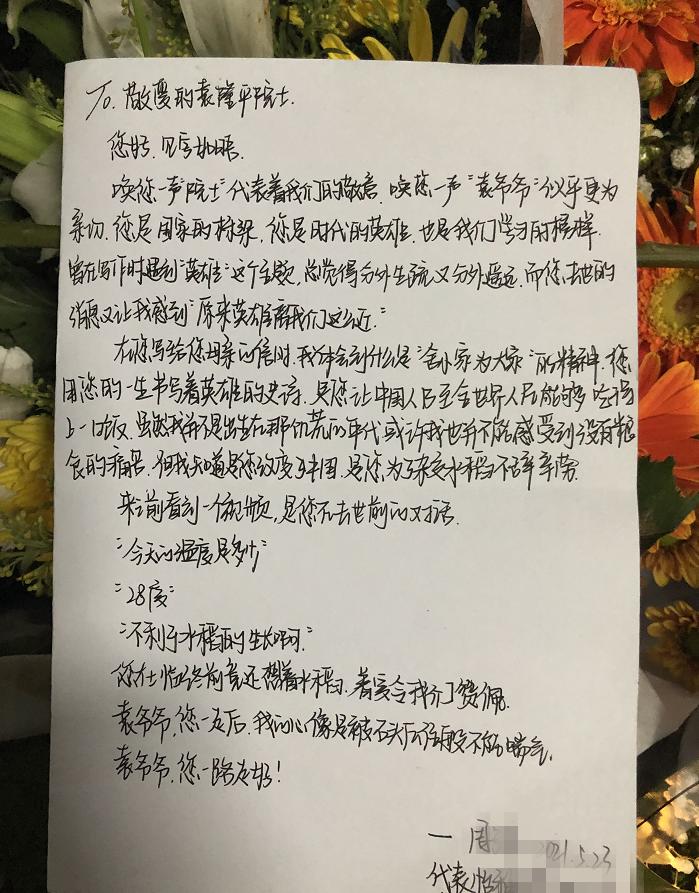 To. 敬爱的袁隆平院士.
您好. 见字如晤.
唤您一声"院士"代表着我们的敬意. 唤您一声"袁爷爷"似乎更为
亲切. 您是国家的栋梁. 您是时代的英雄. 也是我们学习的榜样.
曾在写作时遇到"英雄"这个主题, 总觉得分外生疏又分外遥远. 而您去世的
消息又让我感到"原来英雄离我们这么近."
在您写给您母亲的信时. 我体会到什么是"舍小家为大家"的精神. 您
用您的一生书写着英雄的史诗. 是您让中国人民乃至全世界人民能够吃得
上一口饭. 虽然我并不是出生在那饥荒的年代 或许我也并不能感受到没有粮
食的痛苦. 但我知道是您改变了中国. 是您为了杂交水稻不辞辛劳.
来之前看到一个视频, 是您在去世前的对话.
"今天的温度是多少"
"28度"
"不利于水稻的生长啊."
您在临终前竟还想着水稻. 着实令我们赞佩.
袁爷爷. 您一走后. 我的心像是被石头压住般不能喘气.
袁爷爷. 您一路走好!
— 周
2021.5.23
代表